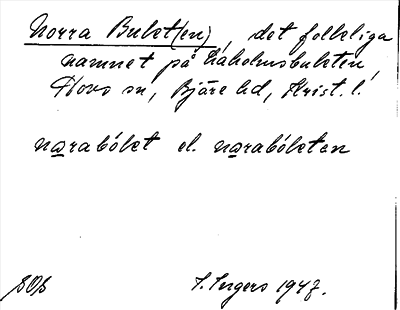 Norra Bulet(en), det folkliga
namnet på Laholmsbukten,
Hovs sn, Bjäre hd, Krist. l.
narabólet el. narabóleten
SOS S. Ingers 1947.